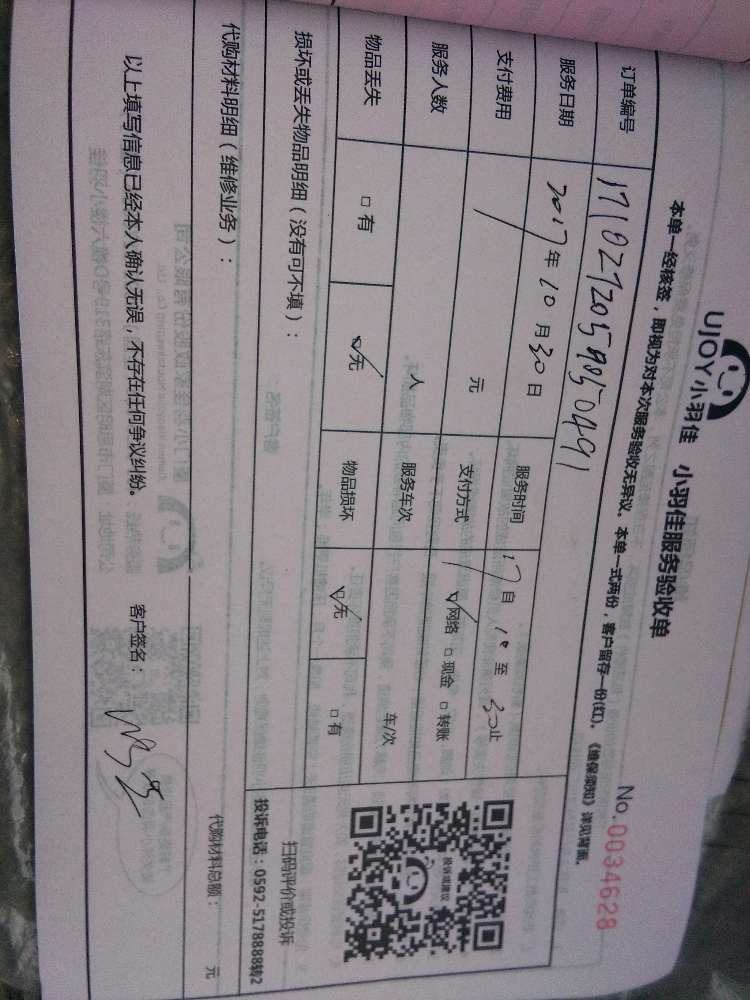 UJOY小羽佳 小羽佳服务验收单
No.0034628
本单一经核签，即视为对本次服务验收无异议。本单一式两份，客户留存一份(红)。《维保须知》详见背面。
订单编号
服务日期 2017年10月30日 服务时间 17自10至30止
支付费用 元 支付方式 网络 □现金 □转账
服务人数 人 服务车次 车/次
物品丢失 □有 ☑无 物品损坏 ☑无 □有
投诉或建议
扫码评价或投诉
投诉电话：0592-5178888转2
损坏或丢失物品明细（没有可不填）：
代购材料明细（维修业务）： 代购材料总额： 元
以上填写信息已经本人确认无误，不存在任何争议纠纷。 客户签名：